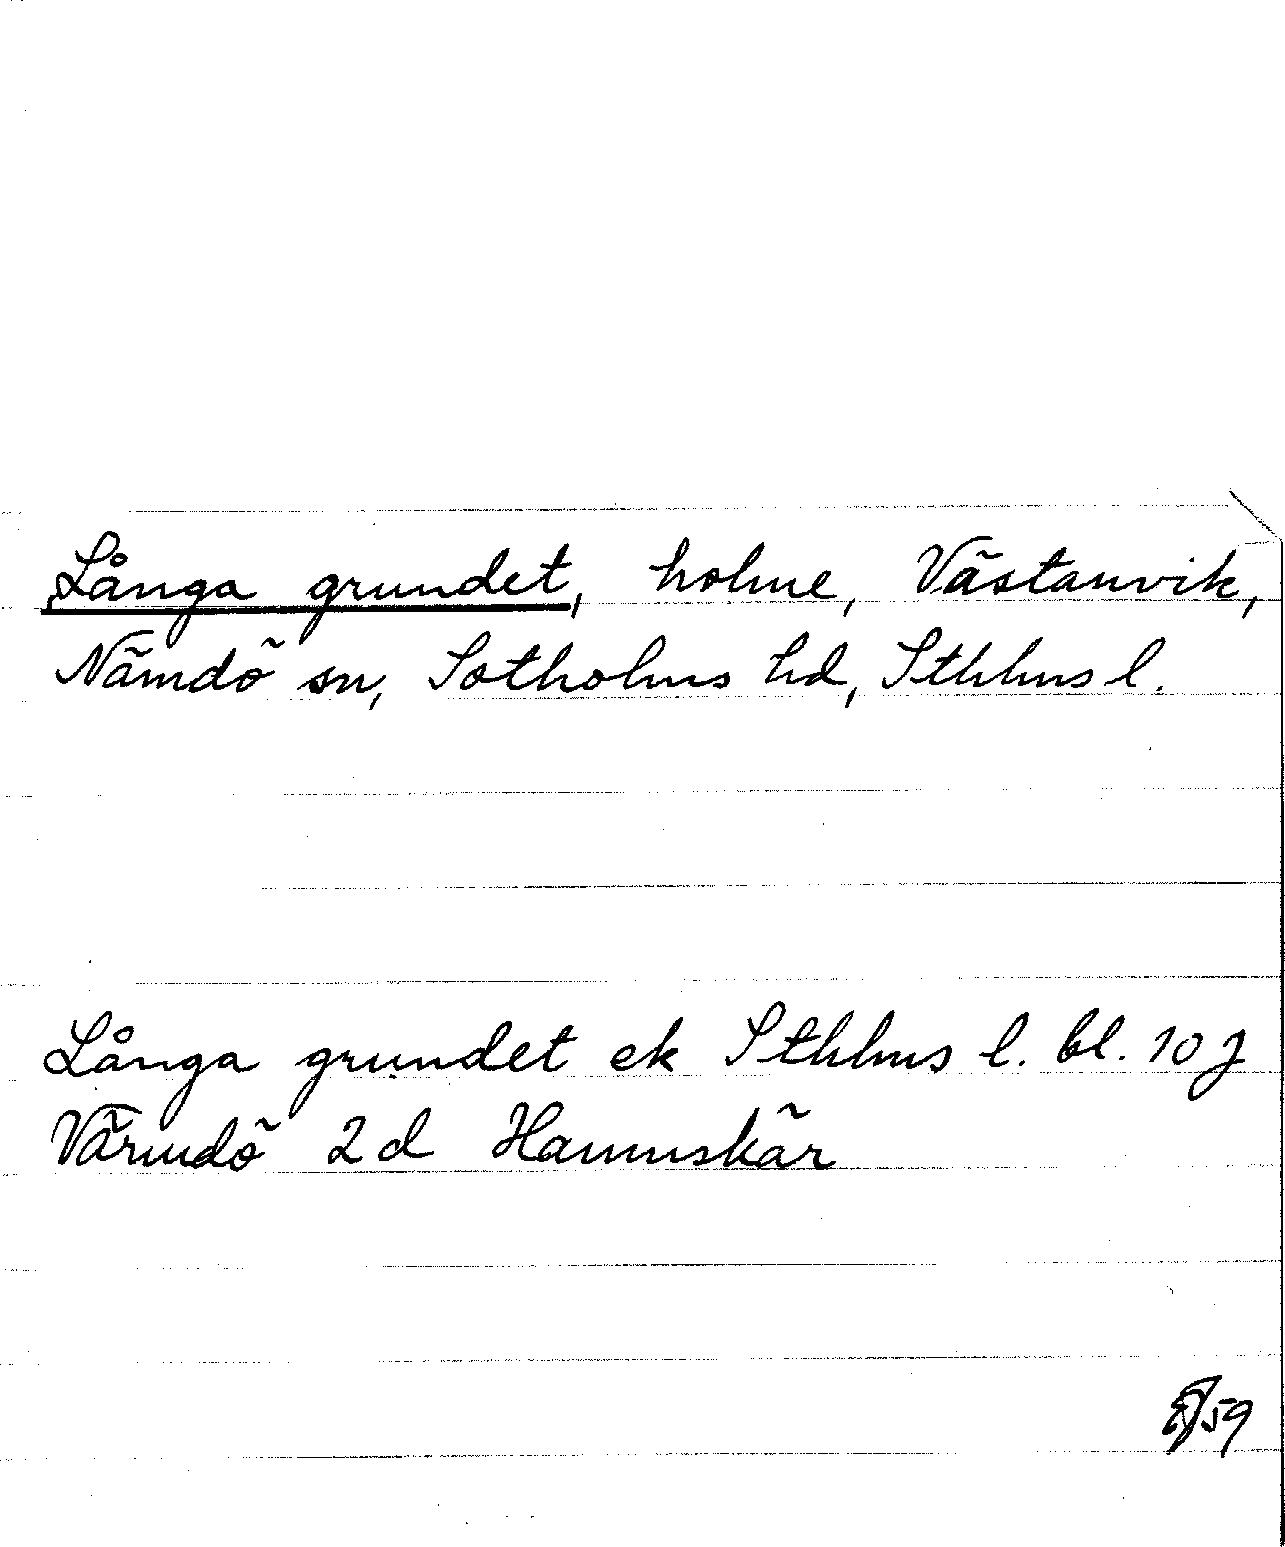 Långa grundet, holme, Västanvik,
Nämdö sn, Sotholms hd, Sthlms l.
Långa grundet ek Sthlms l. bl. 10 J
Värmdö 2 d Hamnskär
/59